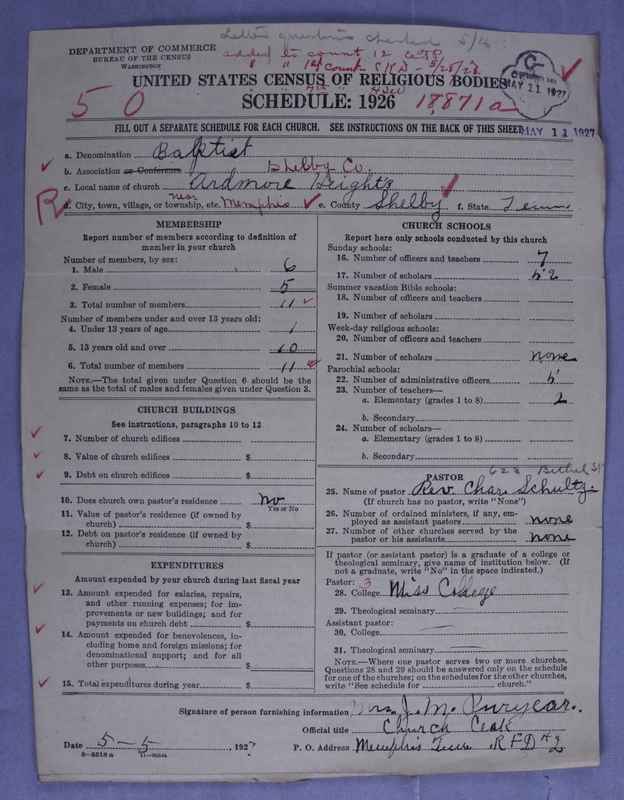 Letter 5/16
DEPARTMENT OF COMMERCE
BUREAU OF THE CENSUS
WASHINGTON
added to count 12
" " 12/count 5/25/28
UNITED STATES CENSUS OF RELIGIOUS BODIES
MAY 11 1927
SCHEDULE: 1926
50
18,871a
FILL OUT A SEPARATE SCHEDULE FOR EACH CHURCH. SEE INSTRUCTIONS ON THE BACK OF THIS SHEET
MAY 11 1927
a. Denomination Baptist
b. Association or Conference Shelby Co.
c. Local name of church Ardmore Heights
R
d. City, town, village, or township, etc. near Memphis e. County Shelby f. State Tenn
MEMBERSHIP
Report number of members according to definition of
member in your church
Number of members, by sex:
1. Male 6
2. Female 5
3. Total number of members 11
Number of members under and over 13 years old:
4. Under 13 years of age 1
5. 13 years old and over 10
6. Total number of members 11
NOTE.—The total given under Question 6 should be the
same as the total of males and females given under Question 3.
CHURCH BUILDINGS
See instructions, paragraphs 10 to 12
7. Number of church edifices
8. Value of church edifices $
9. Debt on church edifices $
10. Does church own pastor's residence no
Yes or No
11. Value of pastor's residence (if owned by
church) $
12. Debt on pastor's residence (if owned by
church) $
EXPENDITURES
Amount expended by your church during last fiscal year
13. Amount expended for salaries, repairs,
and other running expenses; for im-
provements or new buildings; and for
payments on church debt $
14. Amount expended for benevolences, in-
cluding home and foreign missions; for
denominational support; and for all
other purposes $
15. Total expenditures during year $
CHURCH SCHOOLS
Report here only schools conducted by this church
Sunday schools:
16. Number of officers and teachers 7
17. Number of scholars 52
Summer vacation Bible schools:
18. Number of officers and teachers
19. Number of scholars
Week-day religious schools:
20. Number of officers and teachers
21. Number of scholars none
Parochial schools:
22. Number of administrative officers 5
23. Number of teachers—
a. Elementary (grades 1 to 8) 2
b. Secondary
24. Number of scholars—
a. Elementary (grades 1 to 8)
b. Secondary
PASTOR
623 Bethel St
25. Name of pastor Rev. Chas. Schultz.
(If church has no pastor, write "None")
26. Number of ordained ministers, if any, em-
ployed as assistant pastors none
27. Number of other churches served by the
pastor or his assistants none
If pastor (or assistant pastor) is a graduate of a college or
theological seminary, give name of institution below. (If
not a graduate, write "No" in the space indicated.)
Pastor: 3
28. College Miss College
29. Theological seminary
Assistant pastor:
30. College
31. Theological seminary
NOTE.—Where one pastor serves two or more churches,
Questions 28 and 29 should be answered only on the schedule
for one of the churches; on the schedules for the other churches,
write "See schedule for church."
Signature of person furnishing information Mrs. J. M. Puryear.
Official title Church Clerk
Date 5-5 1927 P. O. Address Memphis Tenn R.F.D #2
8-5518a 11-9554a